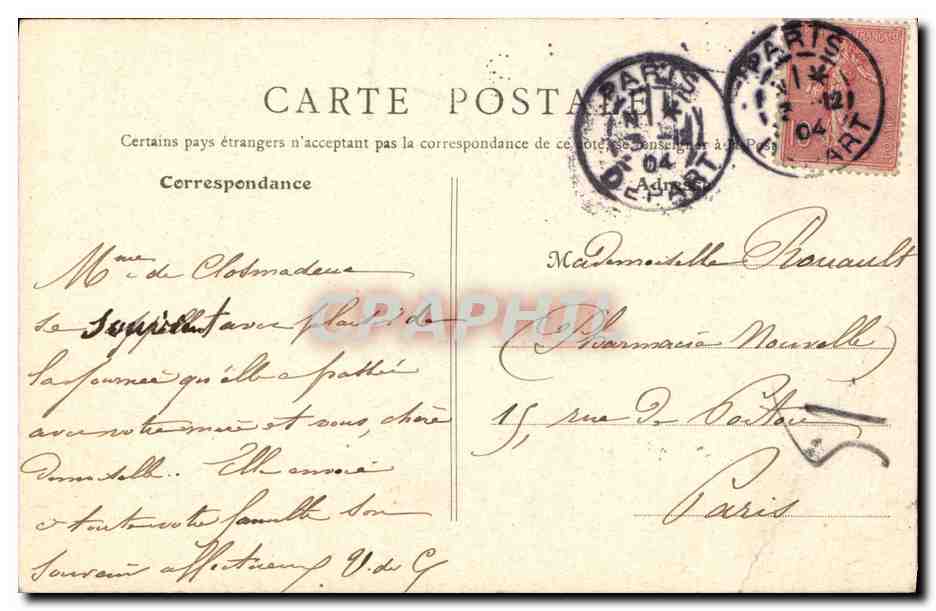 CARTE POSTALE
Certains pays étrangers n'acceptant pas la correspondance de ce côté, se renseigner à la Pos
Correspondance
Adresse
PARIS
1 *
04
DEPART
PARIS
1 *
12
04
PART
FRANÇAI
Mme de Closmadeuc
se souvient avec plaisir de
la journée qu'elle a passée
avec votre mère et vous, chère
demoiselle. Elle envoie
à toute votre famille son
souvenir affectueux V. de C
Mademoiselle Rouault
(Pharmacie Nouvelle)
15, rue de Poitou
51
Paris
CPAPHIL